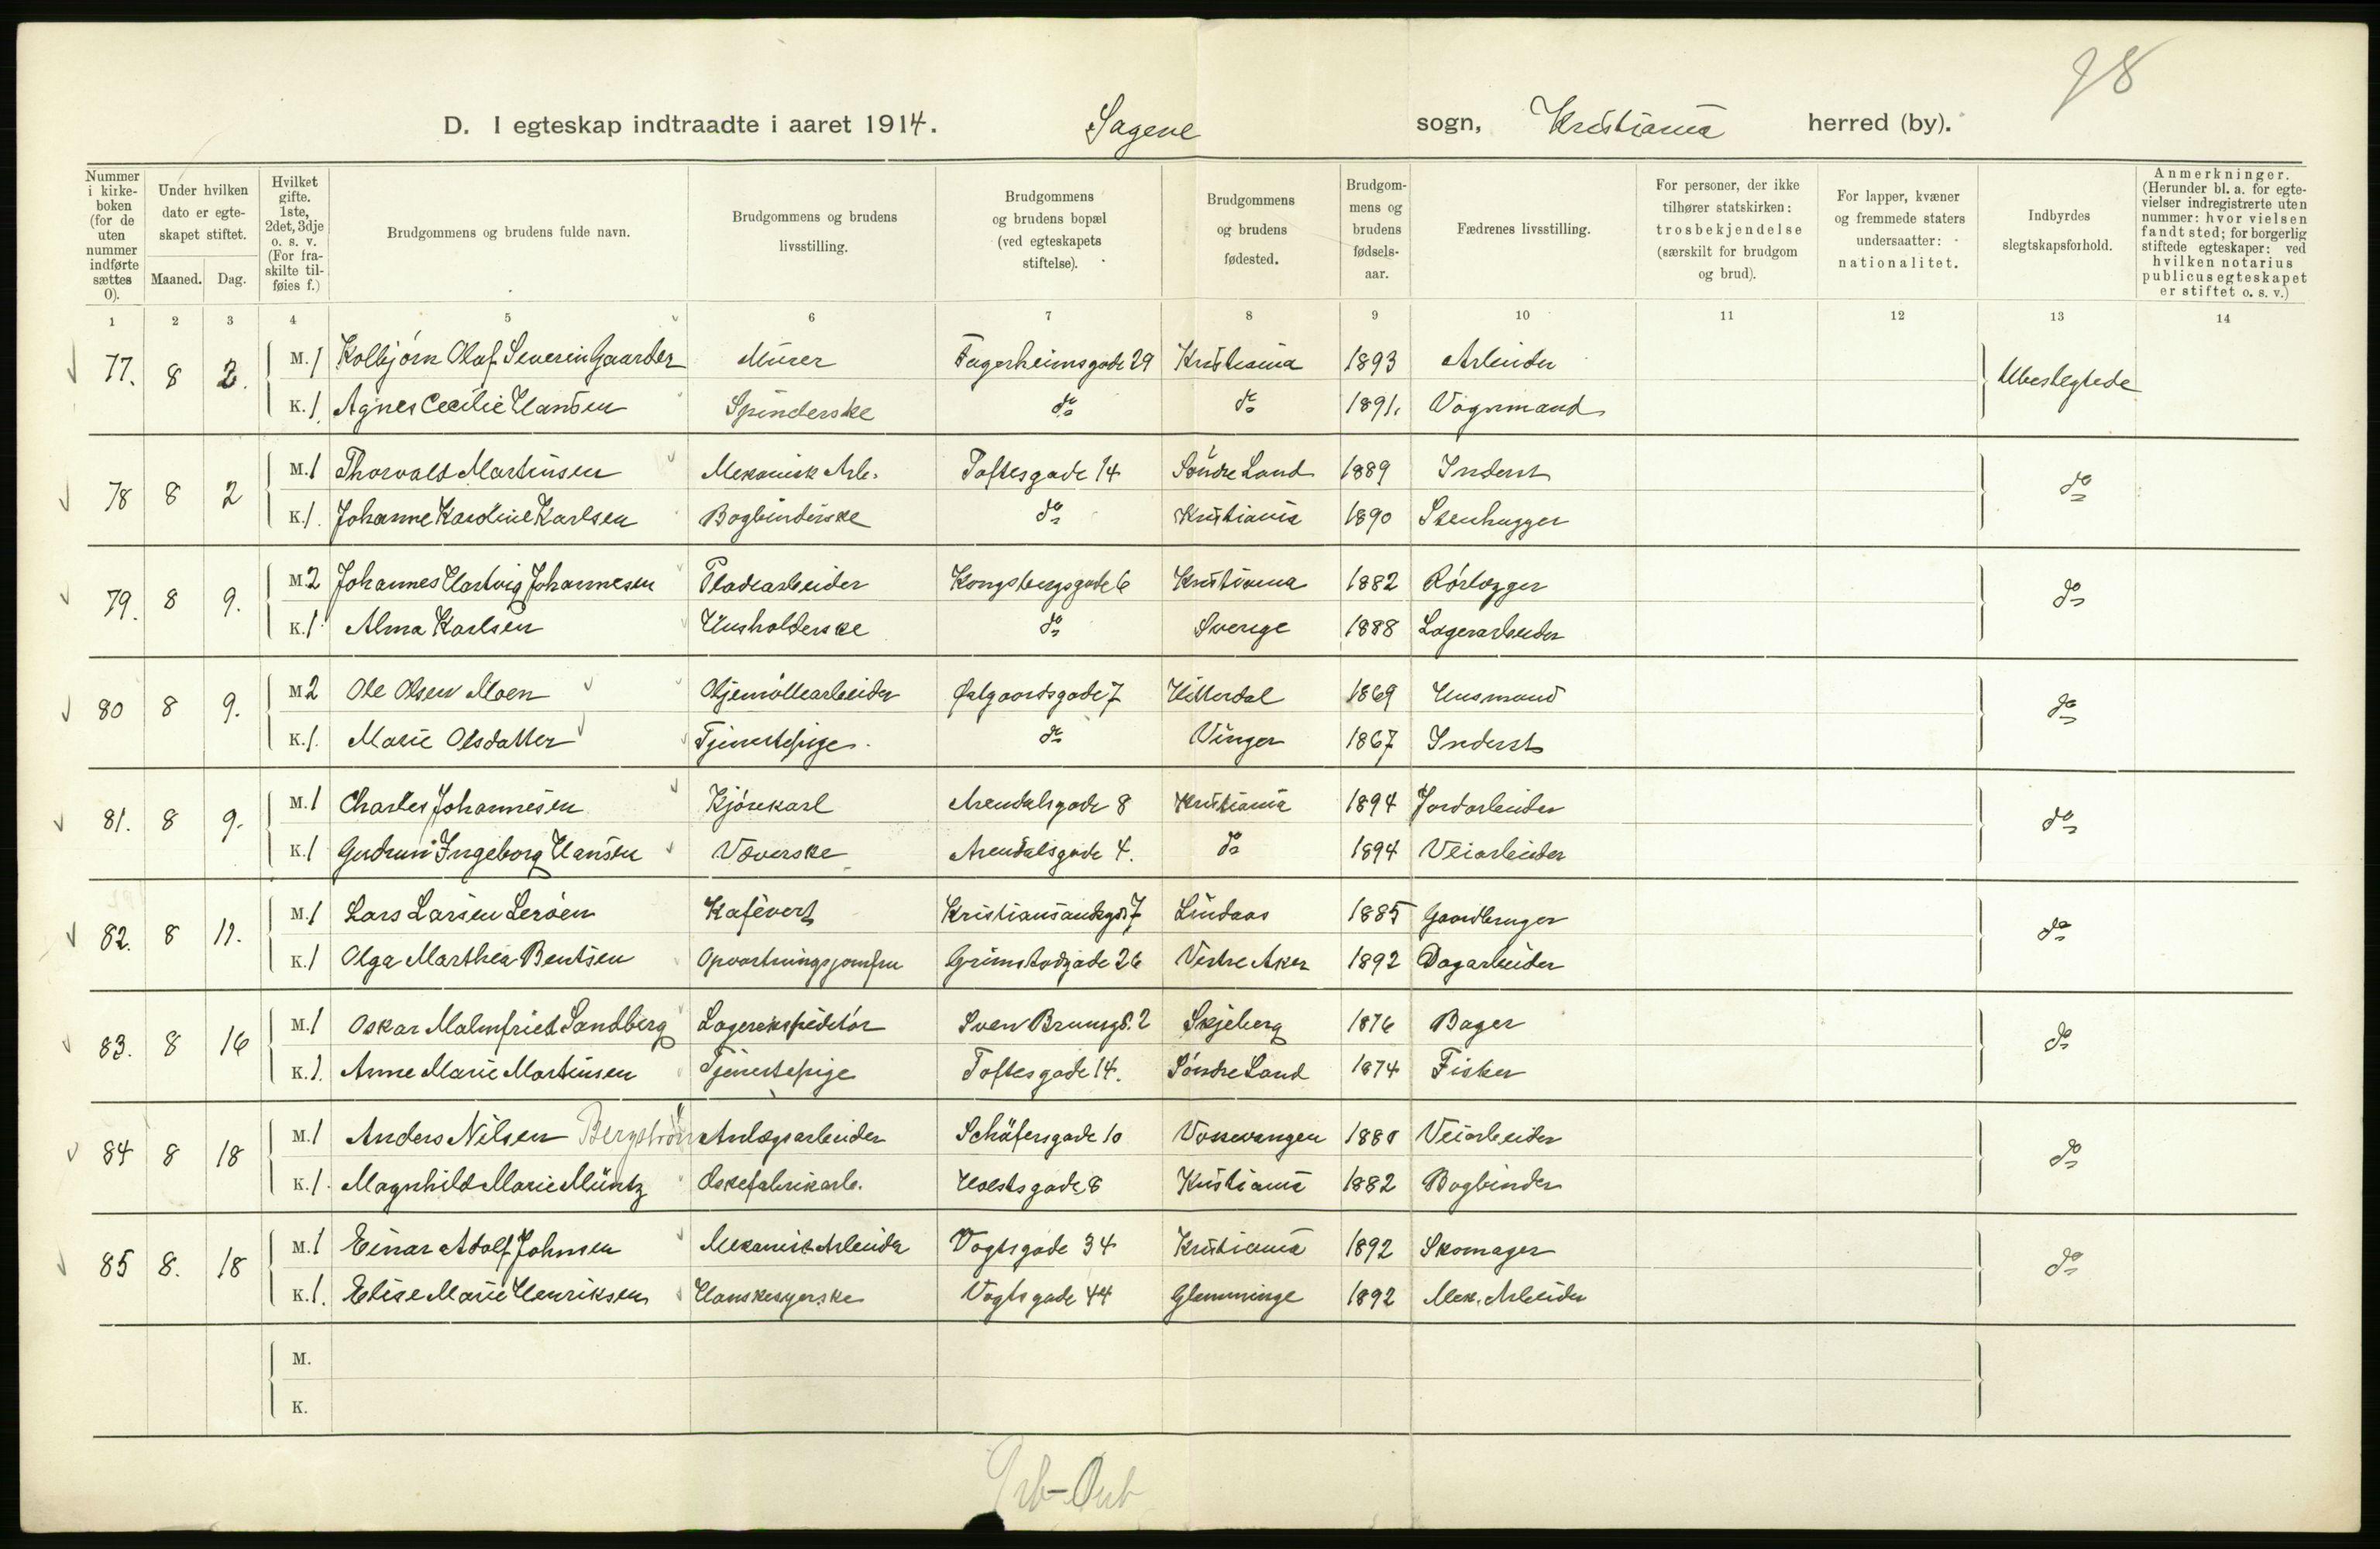 98
D. I egteskap indtraadte i aaret 1914. Sagene sogn, Kristiania herred (by).
Nummer i kirke-boken (for de uten nummer indførte sættes 0).
Under hvilken dato er egte-skapet stiftet.
Maaned. Dag.
Hvilket gifte. 1ste, 2det, 3dje o. s. v. (For fra-skilte til-føies f.)
Brudgommens og brudens fulde navn.
Brudgommens og brudens livsstilling.
Brudgommens og brudens bopæl (ved egteskapets stiftelse).
Brudgommens og brudens fødested.
Brudgom-mens og brudens fødsels-aar.
Fædrenes livsstilling.
For personer, der ikke tilhører statskirken: trosbekjendelse (særskilt for brudgom og brud).
For lapper, kvæner og fremmede staters undersaatter: nationalitet.
Indbyrdes slegtskapsforhold.
Anmerkninger. (Herunder bl. a. for egte-vielser indregistrerte uten nummer: hvor vielsen fandt sted; for borgerlig stiftede egteskaper: ved hvilken notarius publicus egteskapet er stiftet o. s. v.)
1 2 3 4 5 6 7 8 9 10 11 12 13 14
77. 8 2. M. 1 Kolbjørn Olaf Severin Gaarder Murer Fagerheimsgade 29 Kristiania 1893 Arbeider Ubeslegtede
K. 1. Agnes Cecilie Hansen Spinderske do do 1891. Vognmand
78 8 2 M. 1 Thorvald Martinsen Mekanisk Arb. Toftesgade 14 Søndre Land 1889 Inderst do
K. 1. Johanne Karoline Karlsen Bogbinderske do Kristiania 1890 Stenhugger
79. 8 9. M 2 Johannes Hartvig Johannesen Pladearbeider Kongsbergsgade 6 Kristiania 1882 Rørlægger do
K. 1 Alma Karlsen Husholderske do Sverige 1888 Lagerarbeider
80 8 9. M 2 Ole Olsen Moen Oljemøllearbeider Østgaardsgade 7 Hitterdal 1869 Husmand do
K. 1. Marie Olsdatter Tjenestepige do Vinger 1867 Inderst
81. 8 9. M. 1 Charles Johannesen Kjørekarl Arendalsgade 8 Kristiania 1894 Jordarbeider do
K. 1 Gudrun Ingeborg Hansen Væverske Arendalsgade 4. do 1894 Veiarbeider
82. 8 11. M. 1 Lars Larsen Lerøen Kafévert Kristiansandsgd. 7 Lindaas 1885 Gaardbruger do
K. 1 Olga Marthea Bentsen Opvartningsjomfru Grimstadgade 26 Vestre Aker 1892 Dagarbeider
83. 8 16 M. 1 Oskar Malmfried Sandberg Lagerekspeditør Sven Brunsgd. 2 Skjeberg 1876 Bager do
K. 1. Anne Marie Martinsen Tjenestepige Toftesgade 14. Søndre Land 1874 Fisker
84 8 18 M. 1 Anders Nilsen Bergström Anlægsarbeider Schäfersgade 10 Vossevangen 1880 Veiarbeider do
K. 1. Magnhild Marie Müntz Æskefabrikarb. Holstsgade 8 Kristiania 1882 Bogbinder
85 8. 18 M. 1 Einar Adolf Johnsen Mekanisk Arbeider Vogtsgade 34 Kristiania 1892 Skomager do
K. 1. Elise Marie Henriksen Hanskesyerske Vogtsgade 44 Glemminge 1892 Mek. Arbeider
M.
K.